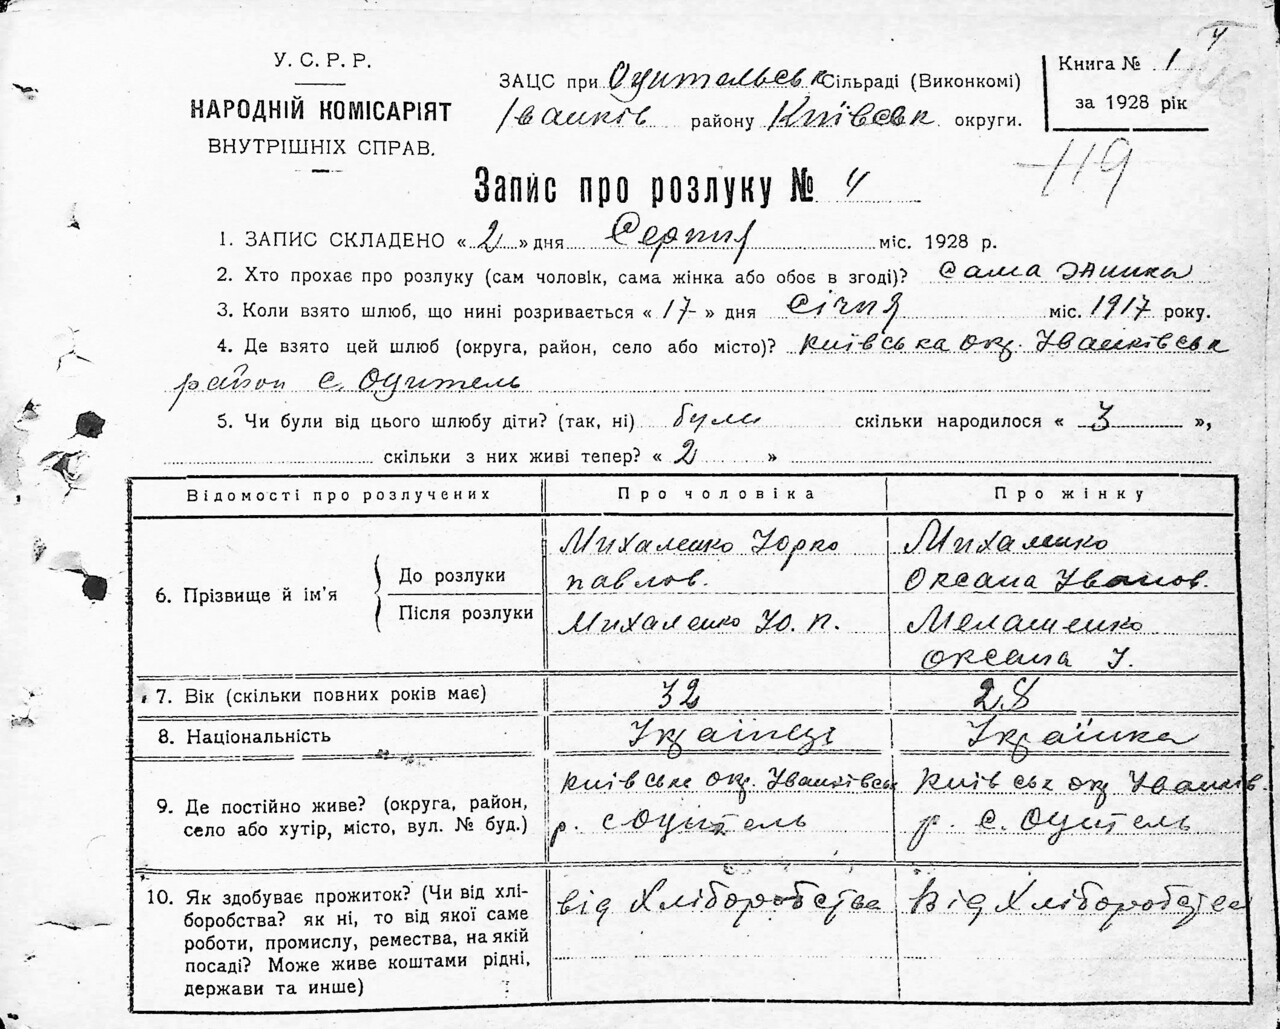 У. С. Р. Р.
НАРОДНІЙ КОМІСАРІЯТ
ВНУТРІШНІХ СПРАВ.
ЗАЦС при Оцительськ Сільраді (Виконкомі)
Іванків району Київськ округи.
Книга № 1
за 1928 рік
119
Запис про розлуку № 4
1. ЗАПИС СКЛАДЕНО « 2 » дня Серпня міс. 1928 р.
2. Хто прохає про розлуку (сам чоловік, сама жінка або обоє в згоді)? сама жинка
3. Коли взято шлюб, що нині розривається « 17 » дня Січня міс. 1917 року.
4. Де взято цей шлюб (округа, район, село або місто)? Київська окр. Іванківськ
район с. Оцитель
5. Чи були від цього шлюбу діти? (так, ні) були скільки народилося « 3 »,
скільки з них живі тепер? « 2 »
Відомості про розлучених Про чоловіка Про жінку
6. Прізвище й ім'я
До розлуки
Михаленко Юрко
павлов.
Михаленко
Оксана Іванов.
Після розлуки
Михаленко Ю. П.
Мелашенко
Оксана І.
7. Вік (скільки повних років має) 32 28
8. Національність Українець Українка
9. Де постійно живе? (округа, район,
село або хутір, місто, вул. № буд.)
Київське окр. Іванківськ
р. с Оцитель
Київськ окр Іванків.
р. с. Оцитель
10. Як здобуває прожиток? (Чи від хлі-
боробства? як ні, то від якої саме
роботи, промислу, ремества, на якій
посаді? Може живе коштами рідні,
держави та инше)
від Хліборобства
Від Хліборобства